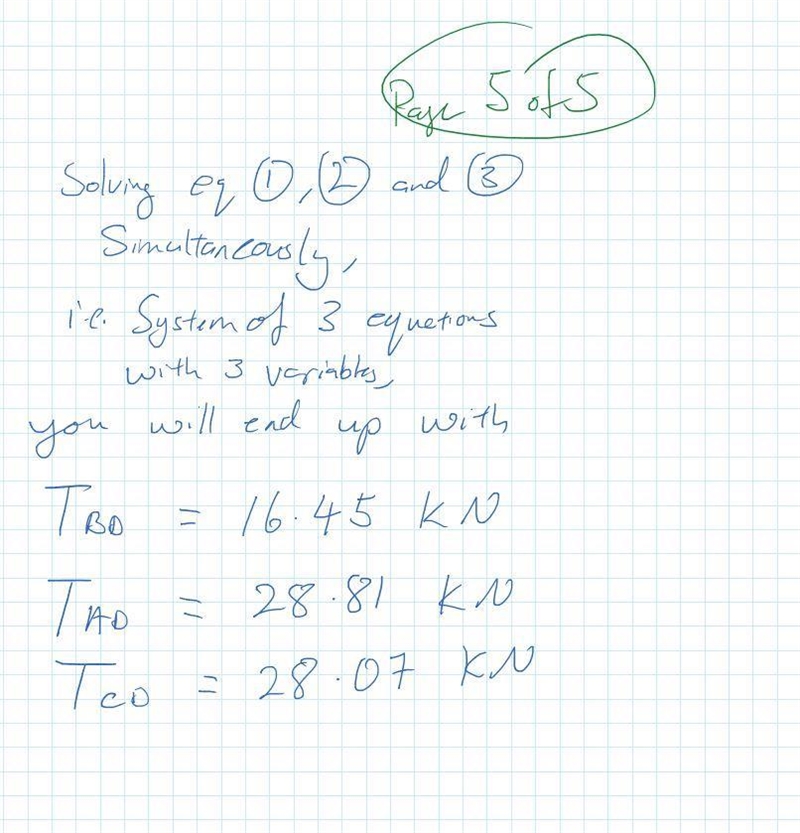 Page 5 of 5
Solving eq ①, ② and ③
Simultaneously,
i.e. System of 3 equations
with 3 variables,
you will end up with
T_BD = 16.45 KN
T_AD = 28.81 KN
T_CD = 28.07 KN